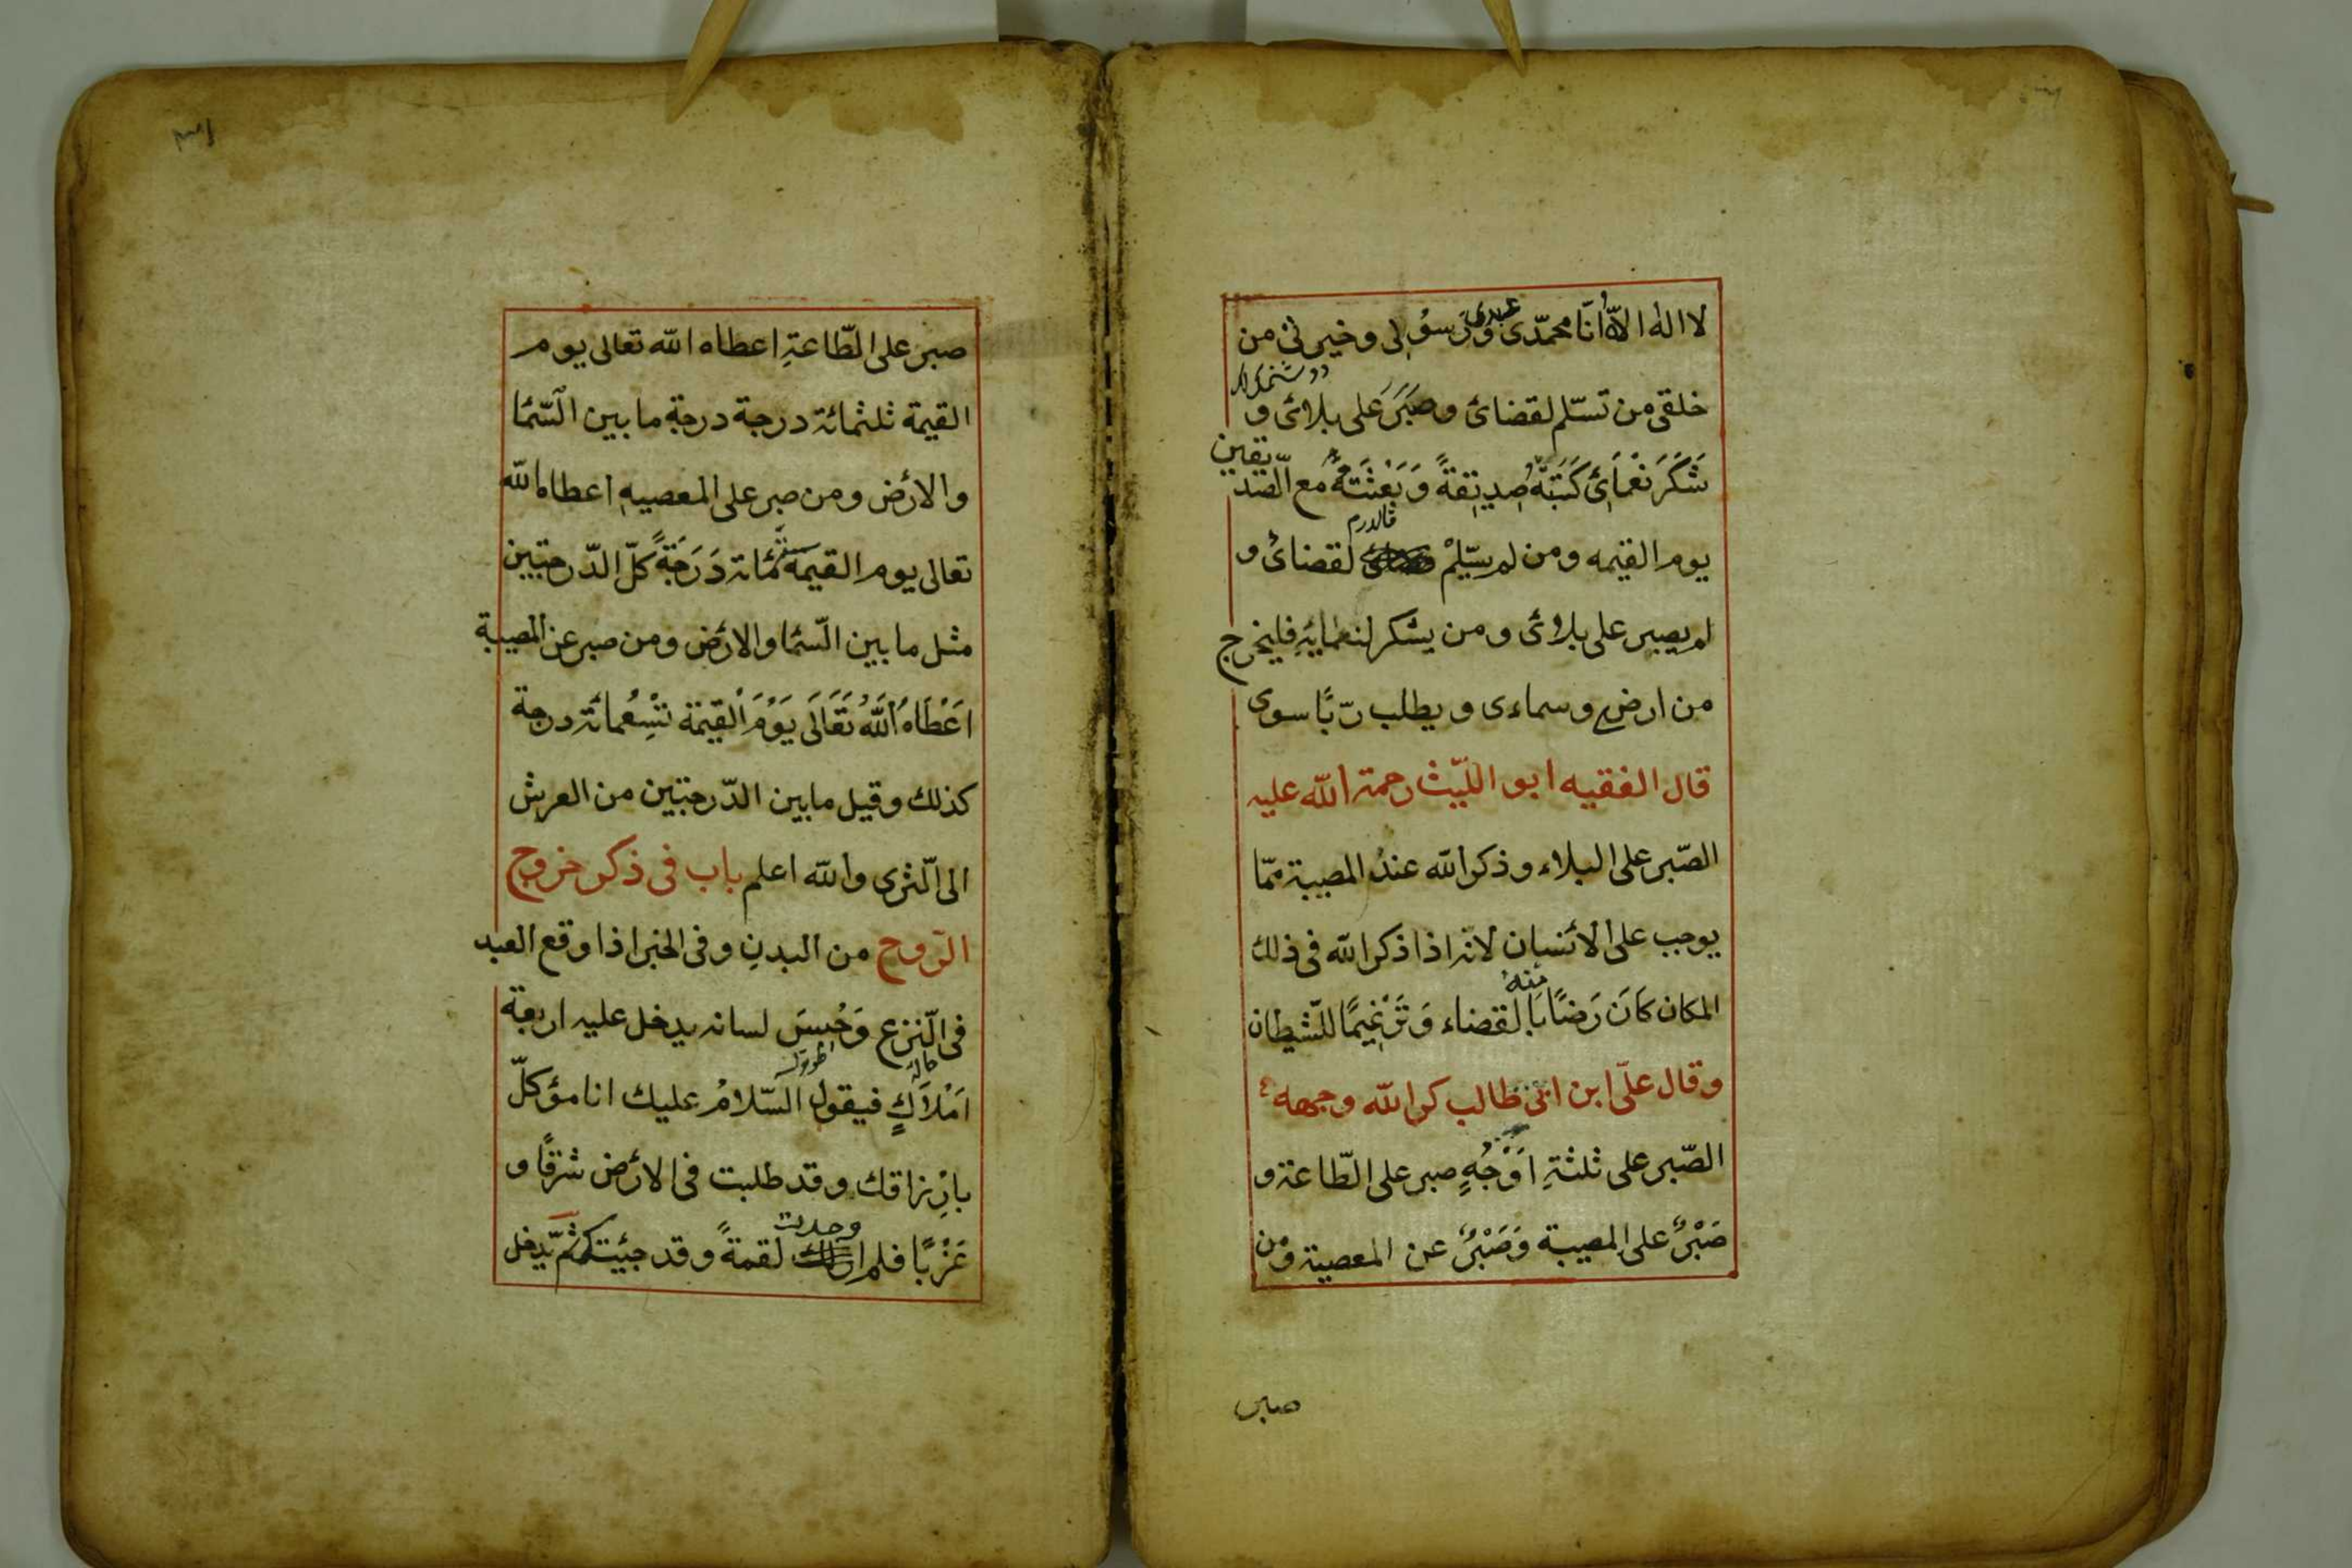 لا اله الا الله انا محمدى عبدى ورسولى وخيرتى من
خلقى من تسلم لقضائ وصَبَرَ على بلائ و
شَكَرَ نَعْمَائِ كَتَبْتُهُ صِدِيقةً وَبَعَثْتُهُ مع الصّديقين
يوم القيمه ومن لم يسَلِّمْ لقضائ و
لم يصبر على بلائ ومن يشكر لنعمايَهِ فليخرج
من ارضى وسماءى ويطلب ربًّا سوى
قال الفقيه ابو اللّيث رحمة الله عليه
الصّبر على البلاء وذكر الله عند المصيبة ممّا
يوجب على الأنسان لانه اذا ذكر الله فى ذلك
المكان كَانَ رَضًا منه بَالقضاء وَتَرْغِيمًا للشّيطان
وقال علىّ ابن ابى طالب كرم الله وجهه
الصّبر على ثلثةِ اَوْجُهٍ صبر على الطّاعة و
صَبْرٌ على المصيبة وَصَبْرٌ عن المعصية ومن
صبر
صبر على الطّاعةِ اعطاه الله تعالى يوم
القيمة ثلثمائة درجة درجة ما بين السّما
والارض ومن صبر على المعصيه اعطاه الله
تعالى يوم القيمة ستّمائة دَرَجَةً كلّ الدّرجتين
مثل ما بين السّما والارض ومن صبر عن المصيبة
اَعْطَاهُ اللهُ تَعَالَى يَوْمَ الْقِيمَة تِسْعُمائة درجة
كذلك وقيل ما بين الدّرجتين من العرش
الى الثّرى والله اعلم باب فى ذكر خروج
الرّوح من البدنِ وفى الخبر اذا وقع العبد
فى النّزع وَحُبِسَ لسانه يدخل عليه اربعة
اَمْلَاكٍ فيقول السّلامُ عليك انا مؤكلّ
بارِزاقك وقد طلبت فى الارض شرقًا و
غَرْبًا فلم وجدت لقمةً وقد جيئتكم ثمّ يّدخل